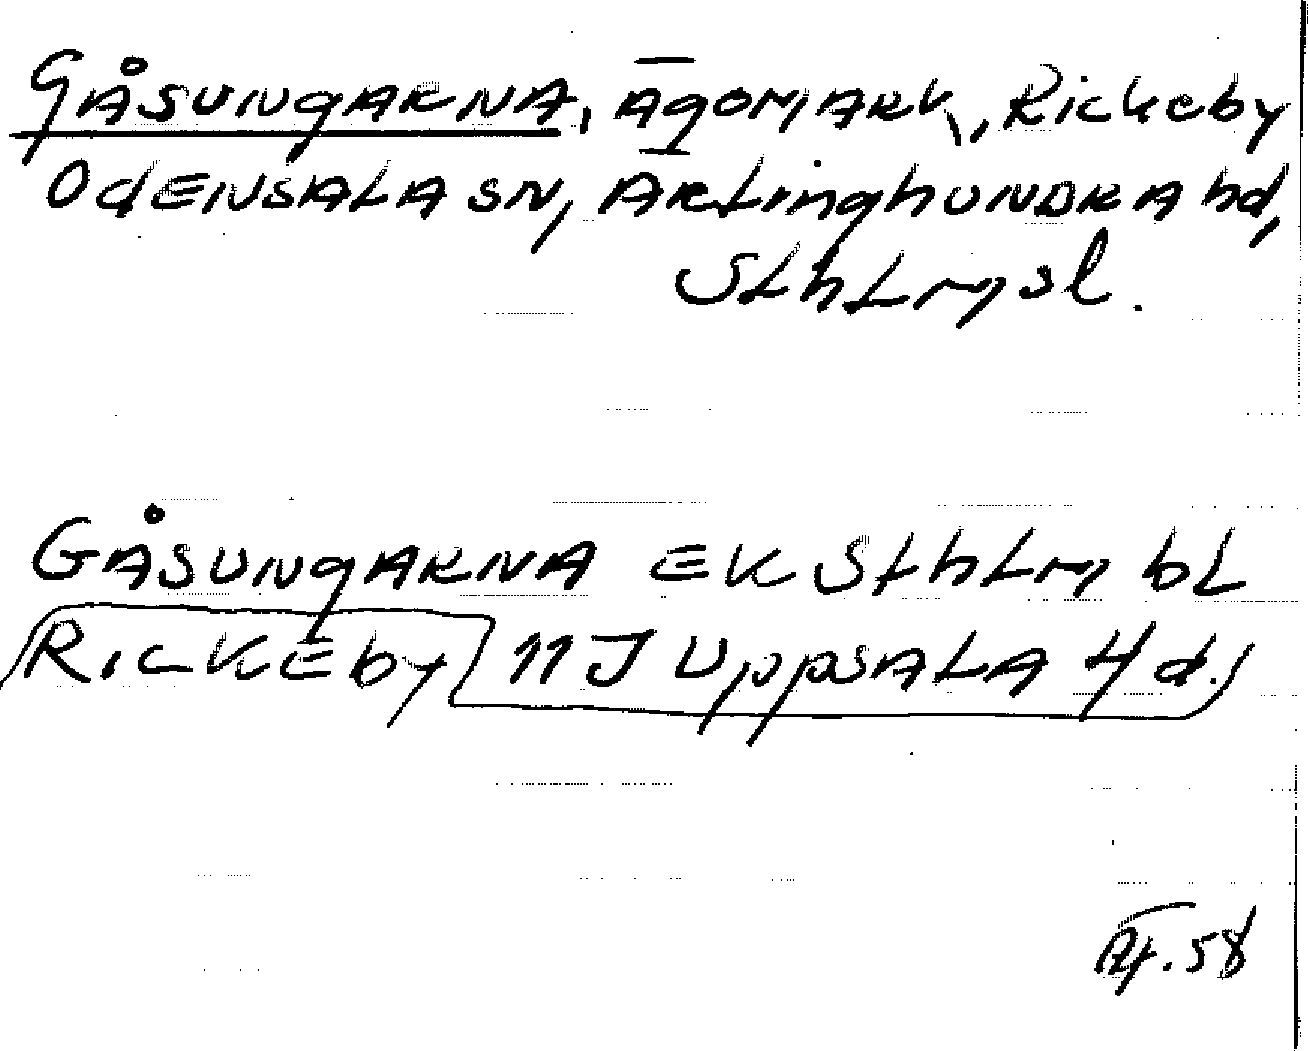 GÅSUNGARNA, ÄGOMARK, Rickeby
OdENSALA SN, ÄRLinghUNDRA hd,
Sthlms l.
GÅSUNGARNA EK Sthlm bl
RICKEby 11J UppsALA 4 d.